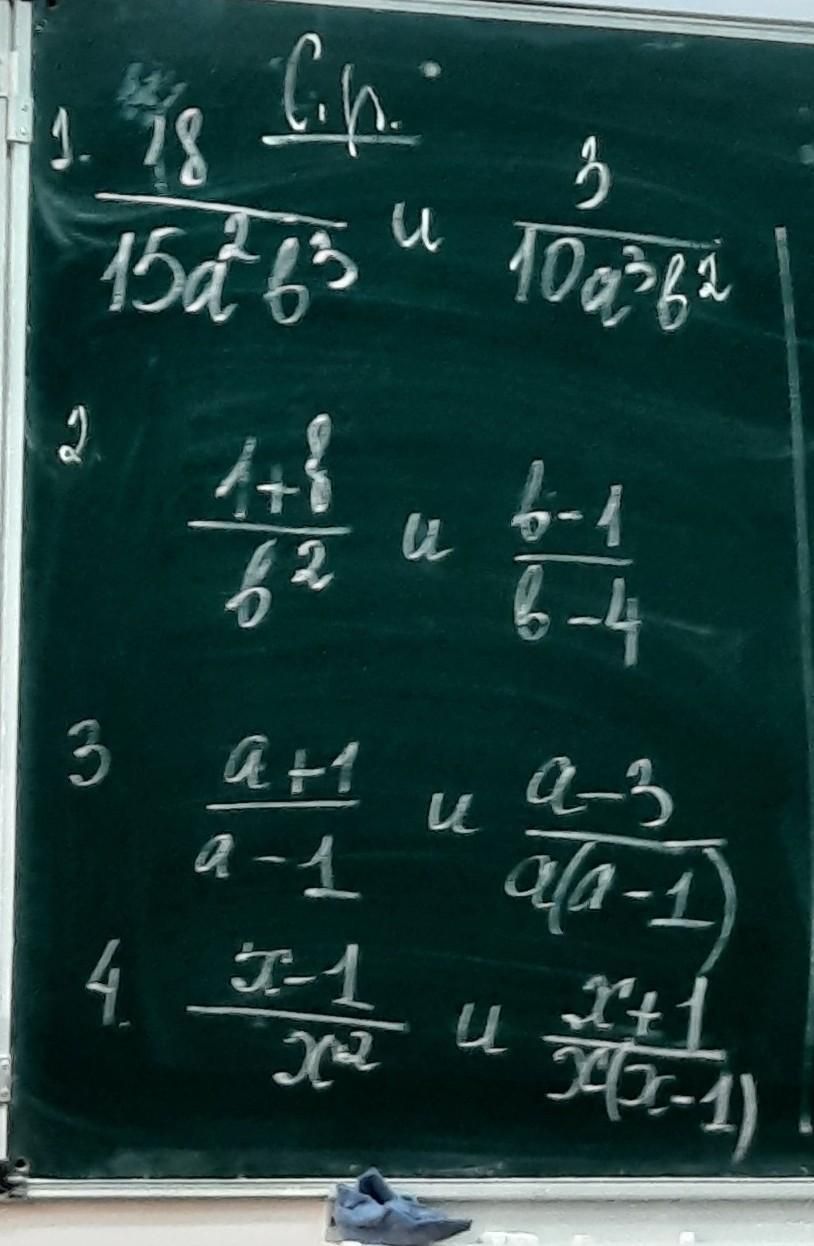 С.р.
1. 18/(15a²b³) и 3/(10a³b²)
2 (1+8)/b² и (b-1)/(b-4)
3 (a+1)/(a-1) и (a-3)/(a(a-1))
4. (x-1)/x² и (x+1)/(x(x-1))